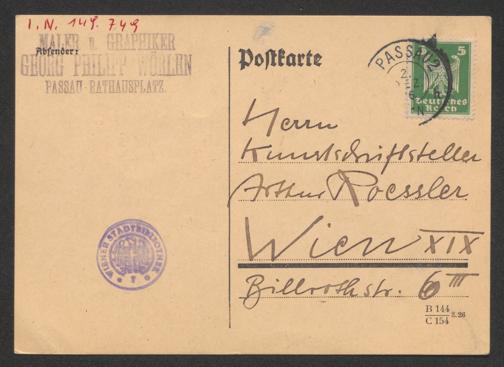 I.N. 149.749
MALER u. GRAPHIKER
Absender:
GEORG PHILIPP WÖRLEN
PASSAU-RATHAUSPLATZ.
Postkarte
PASSAU 2
5
Deutsches
Reich
Herrn
Kunstschriftsteller
Arthur Roessler
Wien XIX
Billrothstr. 6 III
WIENER STADTBIBLIOTHEK
B 144
C 154